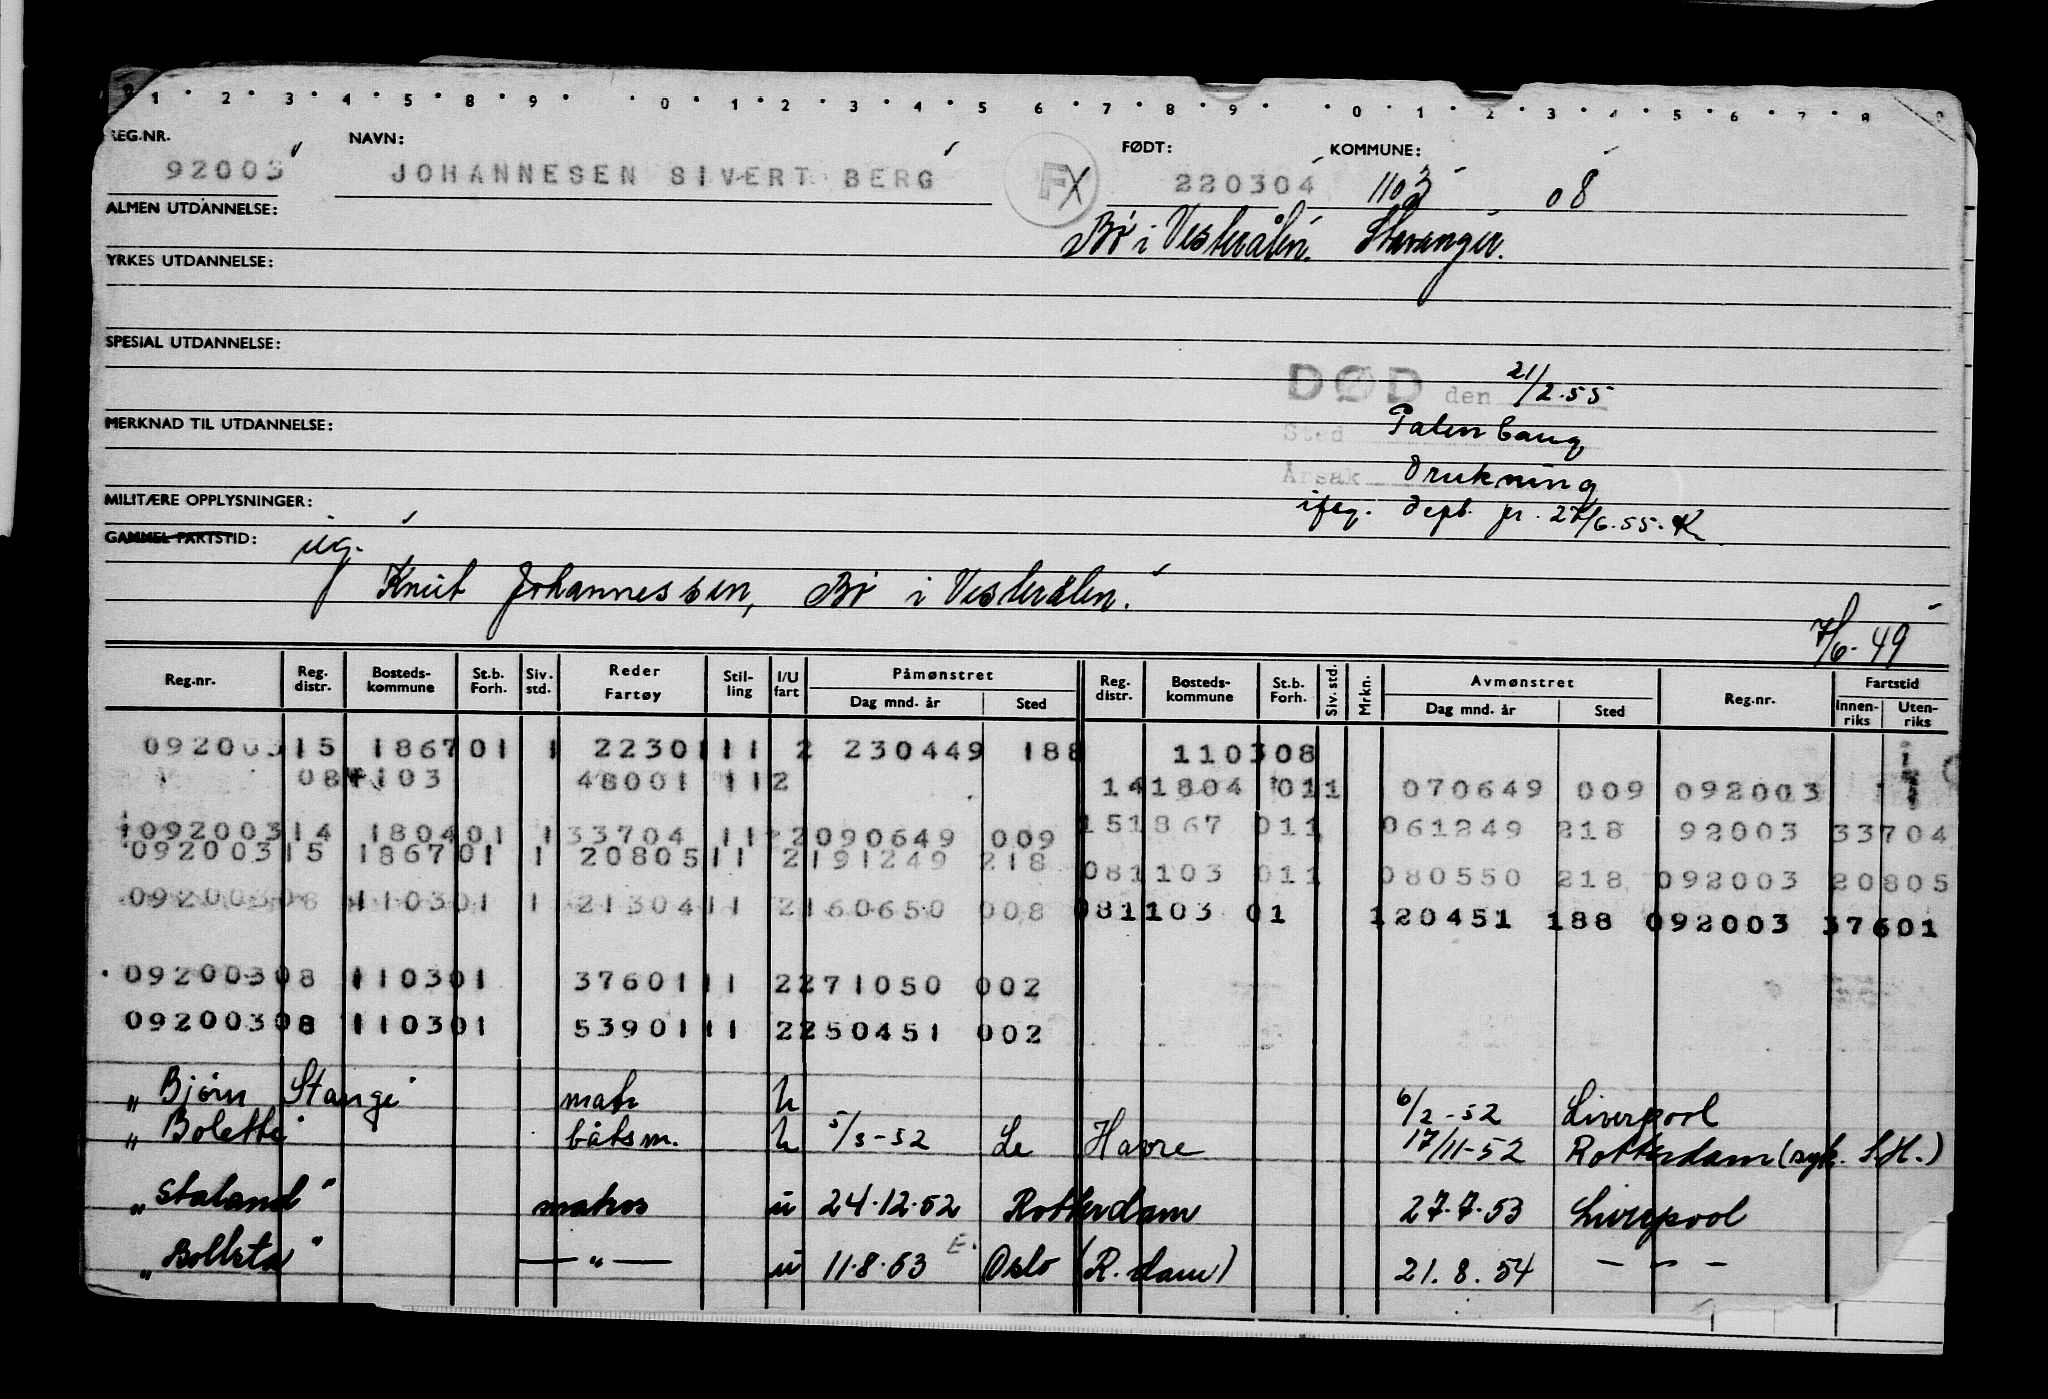 1 2 3 4 5 8 9 0 1 2 3 4 5 6 7 8 9 0 1 2 3 4 5 6 7 8 9
REG.NR. NAVN: FØDT: KOMMUNE:
92003 JOHANNESEN SIVERT BERG F 220304 1103 08
ALMEN UTDANNELSE: Bø i Vesterålen. Stavanger.
YRKES UTDANNELSE:
SPESIAL UTDANNELSE:
DØD den 21/2.55
MERKNAD TIL UTDANNELSE: Sted Palenbang
Årsak Drukning
MILITÆRE OPPLYSNINGER: ifgl. Dept. pr. 27/6.55. K
GAMMEL FARTSTID:
Knut Johannessen, Bø i Vesterålen.
7/6-49
Reg.nr. Reg. distr. Bosteds-kommune St.b. Forh. Siv. std. Reder Fartøy Stil-ling I/U fart Påmønstret Dag mnd. år Sted Reg. distr. Bosteds-kommune St.b. Forh. Siv. std. Mrkn. Avmønstret Dag mnd. år Sted Reg.nr. Fartstid Innen-riks Uten-riks
092003 15 1867 01 1 22301 11 2 230449 188 1103 08
08 1103 48001 11 2 14 1804 011 070649 009 092003
092003 14 1804 01 1 33704 11 2 090649 009 15 1867 011 061249 218 92003 33704
092003 15 1867 01 1 20805 11 2 191249 218 08 1103 011 080550 218 092003 20805
092003 08 1103 01 1 21304 11 2 160650 008 08 1103 01 120451 188 092003 37601
092003 08 1103 01 37601 11 2 271050 002
092003 08 1103 01 53901 11 2 250451 002
"Bjørn Stange" matr u 6/2-52 Liverpool
"Bolette" båtsm. u 5/3-52 Le Havre 17/11-52 Rotterdam (syk. S.H.)
"Staland" matros u 24.12.52 Rotterdam 27.7.53 Liverpool
"Bollsta" — " — u 11.8.53 E. Oslo (R.dam) 21.8.54 — — —